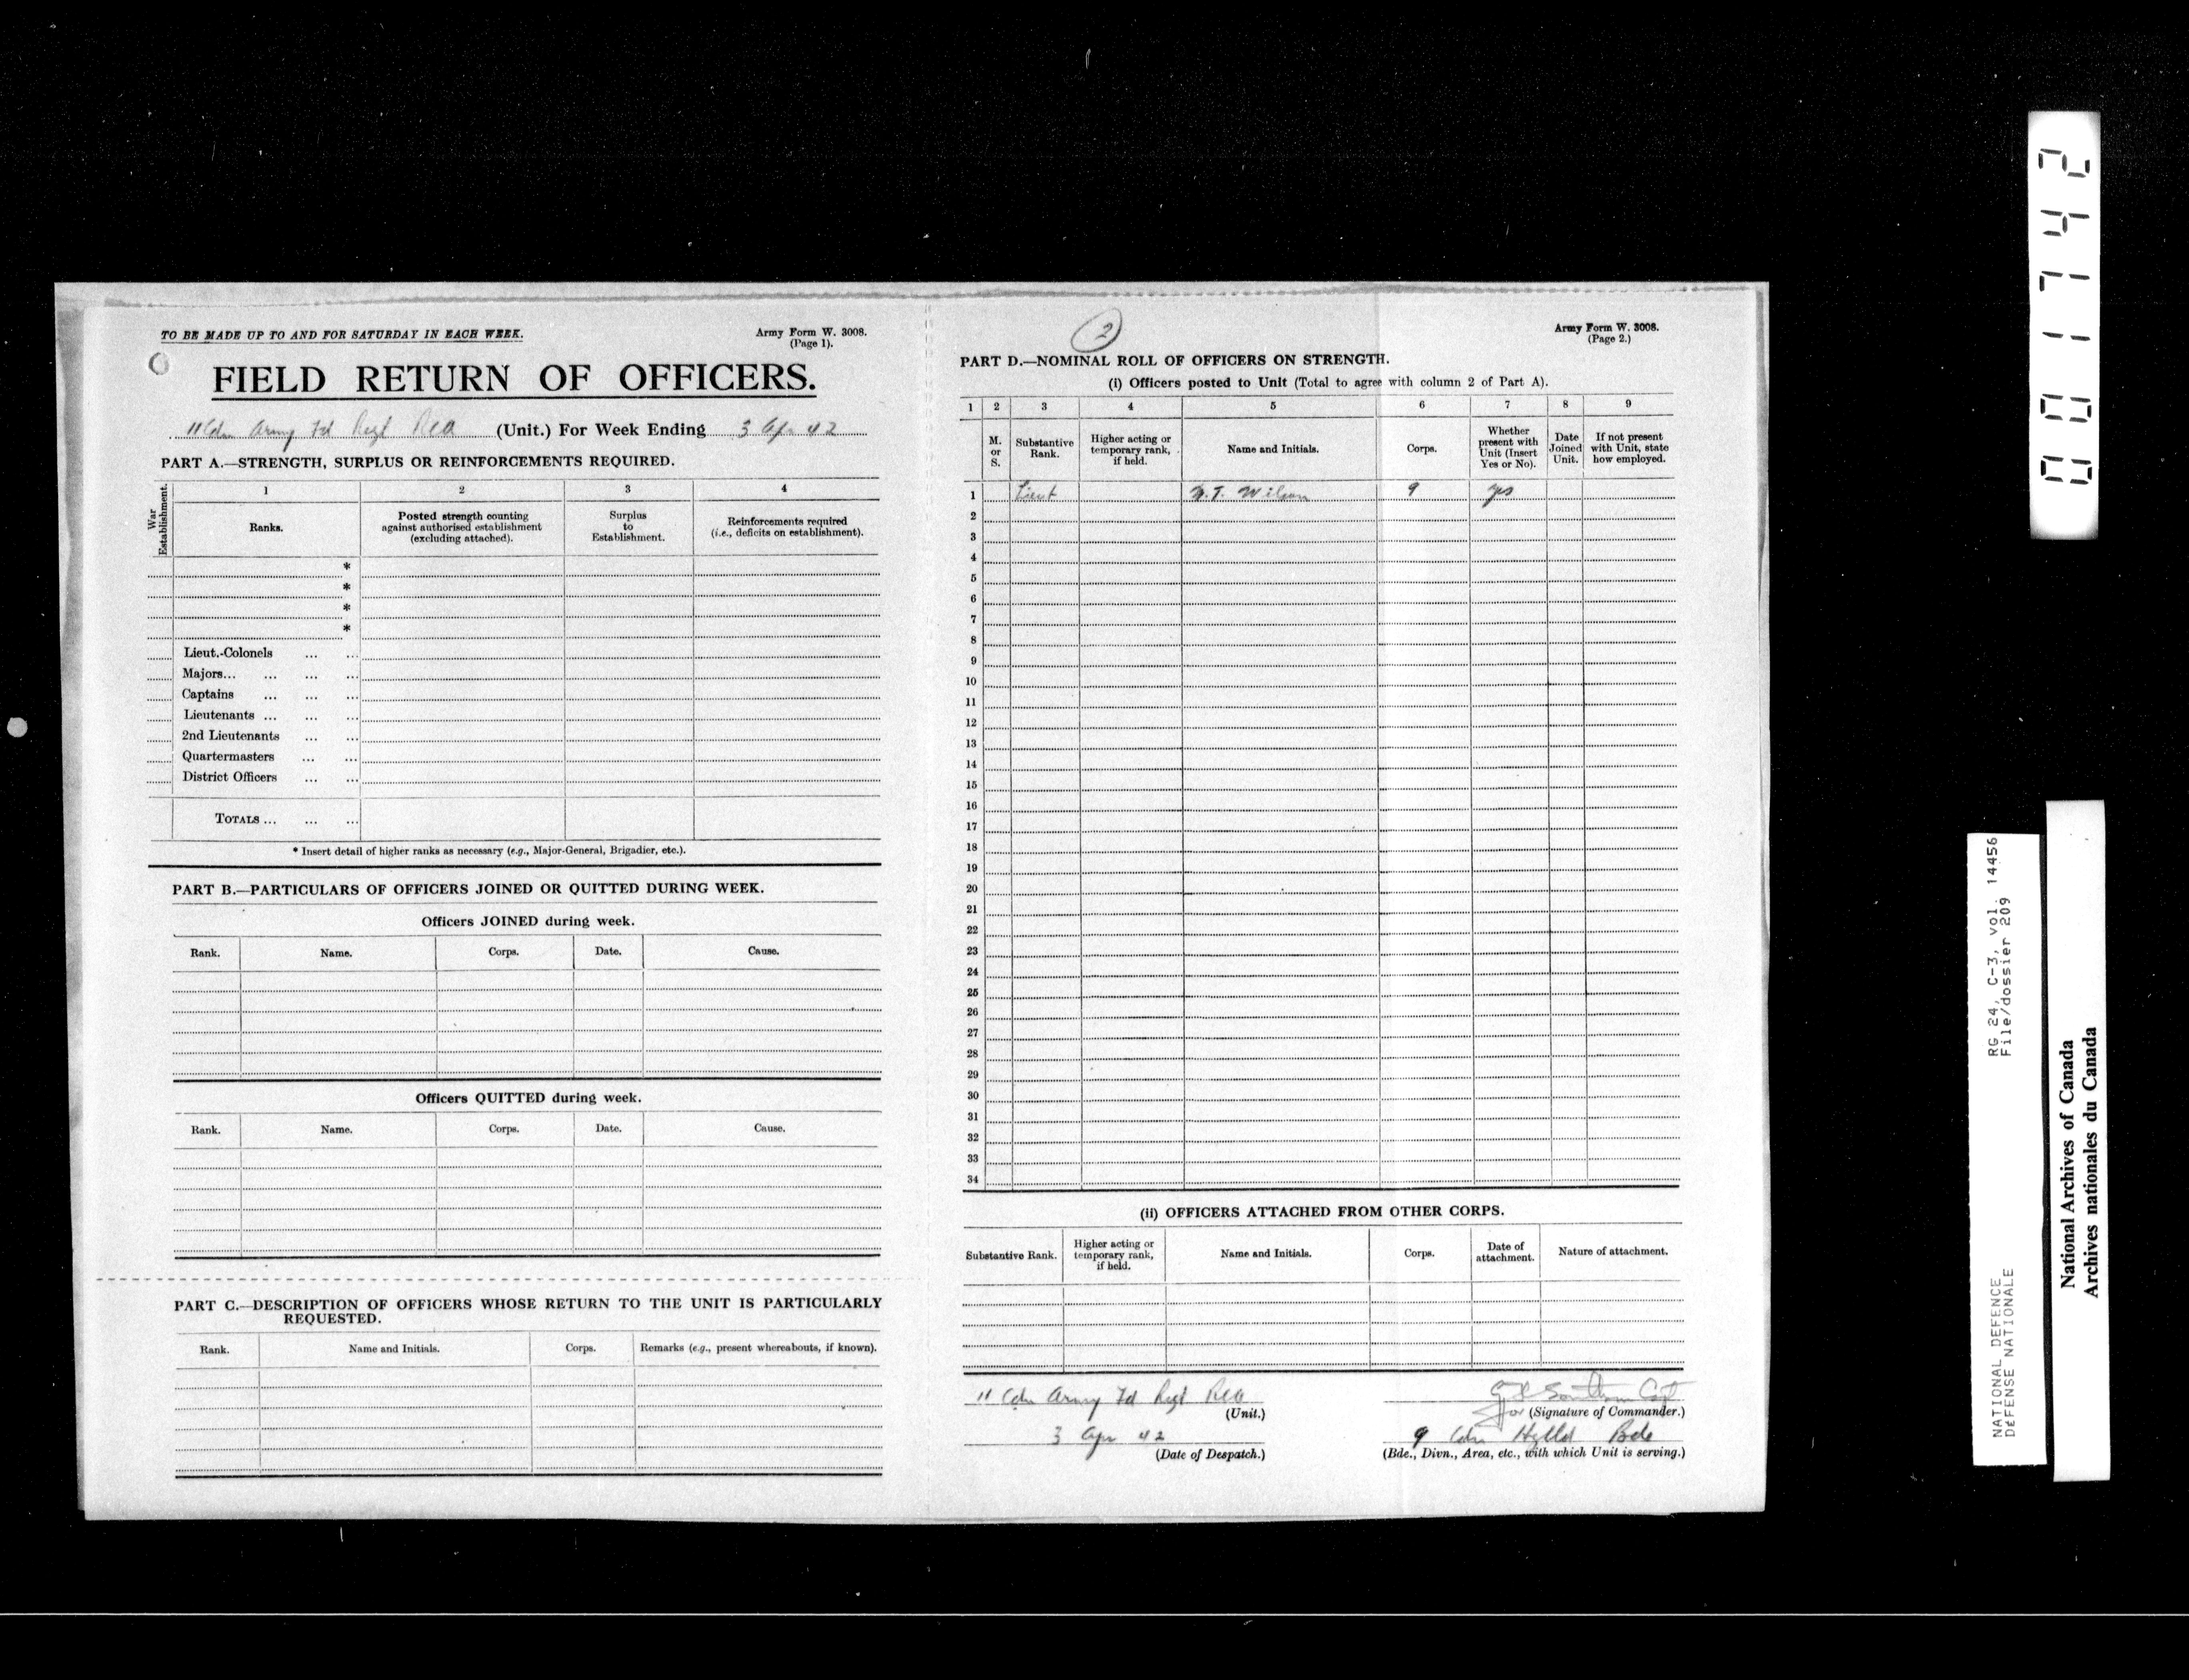 TO BE MADE UP TO AND FOR SATURDAY IN EACH WEEK.
Army Form W. 3008.
(Page 1).
FIELD RETURN OF OFFICERS.
11 Cdn Army Fd Regt RCA (Unit.) For Week Ending 3 Apr 42
PART A.—STRENGTH, SURPLUS OR REINFORCEMENTS REQUIRED.
War Establishment.
1 2 3 4
Ranks.
Posted strength counting against authorised establishment (excluding attached).
Surplus to Establishment.
Reinforcements required (i.e., deficits on establishment).
*
*
*
*
Lieut.-Colonels ... ...
Majors... ... ... ...
Captains ... ... ...
Lieutenants ... ... ...
2nd Lieutenants ... ...
Quartermasters ... ...
District Officers ... ...
TOTALS ... ... ...
* Insert detail of higher ranks as necessary (e.g., Major-General, Brigadier, etc.).
PART B.—PARTICULARS OF OFFICERS JOINED OR QUITTED DURING WEEK.
Officers JOINED during week.
Rank. Name. Corps. Date. Cause.
Officers QUITTED during week.
Rank. Name. Corps. Date. Cause.
PART C.—DESCRIPTION OF OFFICERS WHOSE RETURN TO THE UNIT IS PARTICULARLY
REQUESTED.
Rank. Name and Initials. Corps. Remarks (e.g., present whereabouts, if known).
2
Army Form W. 3008.
(Page 2.)
PART D.—NOMINAL ROLL OF OFFICERS ON STRENGTH.
(i) Officers posted to Unit (Total to agree with column 2 of Part A).
1 2 3 4 5 6 7 8 9
M. or S.
Substantive Rank.
Higher acting or temporary rank, if held.
Name and Initials.
Corps.
Whether present with Unit (Insert Yes or No).
Date Joined Unit.
If not present with Unit, state how employed.
1 Lieut Wilson 9 yes
2
3
4
5
6
7
8
9
10
11
12
13
14
15
16
17
18
19
20
21
22
23
24
25
26
27
28
29
30
31
32
33
34
(ii) OFFICERS ATTACHED FROM OTHER CORPS.
Substantive Rank.
Higher acting or temporary rank, if held.
Name and Initials.
Corps.
Date of attachment.
Nature of attachment.
11 Cdn Army Fd Regt RCA
(Unit.)
3 Apr 42
(Date of Despatch.)
Capt
for (Signature of Commander.)
9 Cdn Bde
(Bde., Divn., Area, etc., with which Unit is serving.)
001742
RG 24, C-3, vol. 14456
File/dossier 209
NATIONAL DEFENCE
DÉFENSE NATIONALE
National Archives of Canada
Archives nationales du Canada